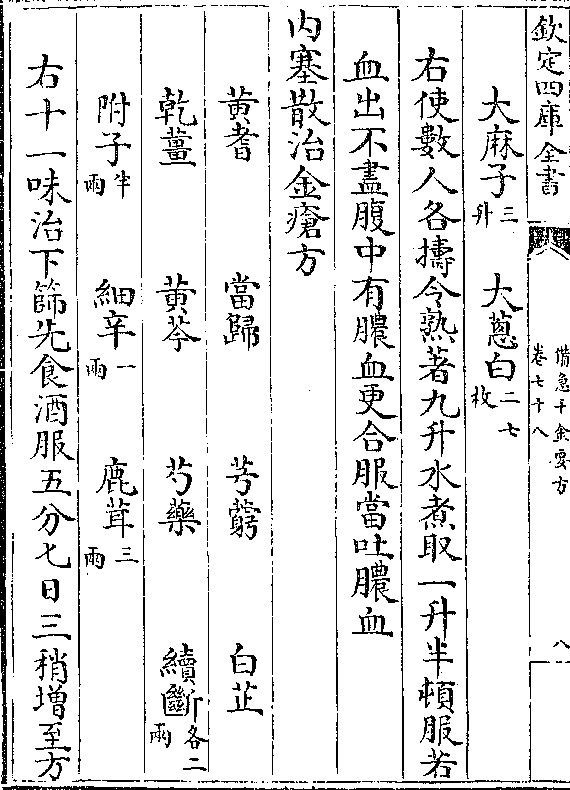 欽定四庫全書
備急千金要方
卷七十八
八
大麻子三升 大蔥白二七枚
右使數人各擣令熟著九升水煮取一升半頓服若
血出不盡腹中有膿血更合服當吐膿血
内塞散治金瘡方
黄耆 當歸 芎藭 白芷
乾薑 黄芩 芍藥 續斷各二兩
附子半兩 細辛一兩 鹿茸三兩
右十一味治下篩先食酒服五分七日三稍增至方